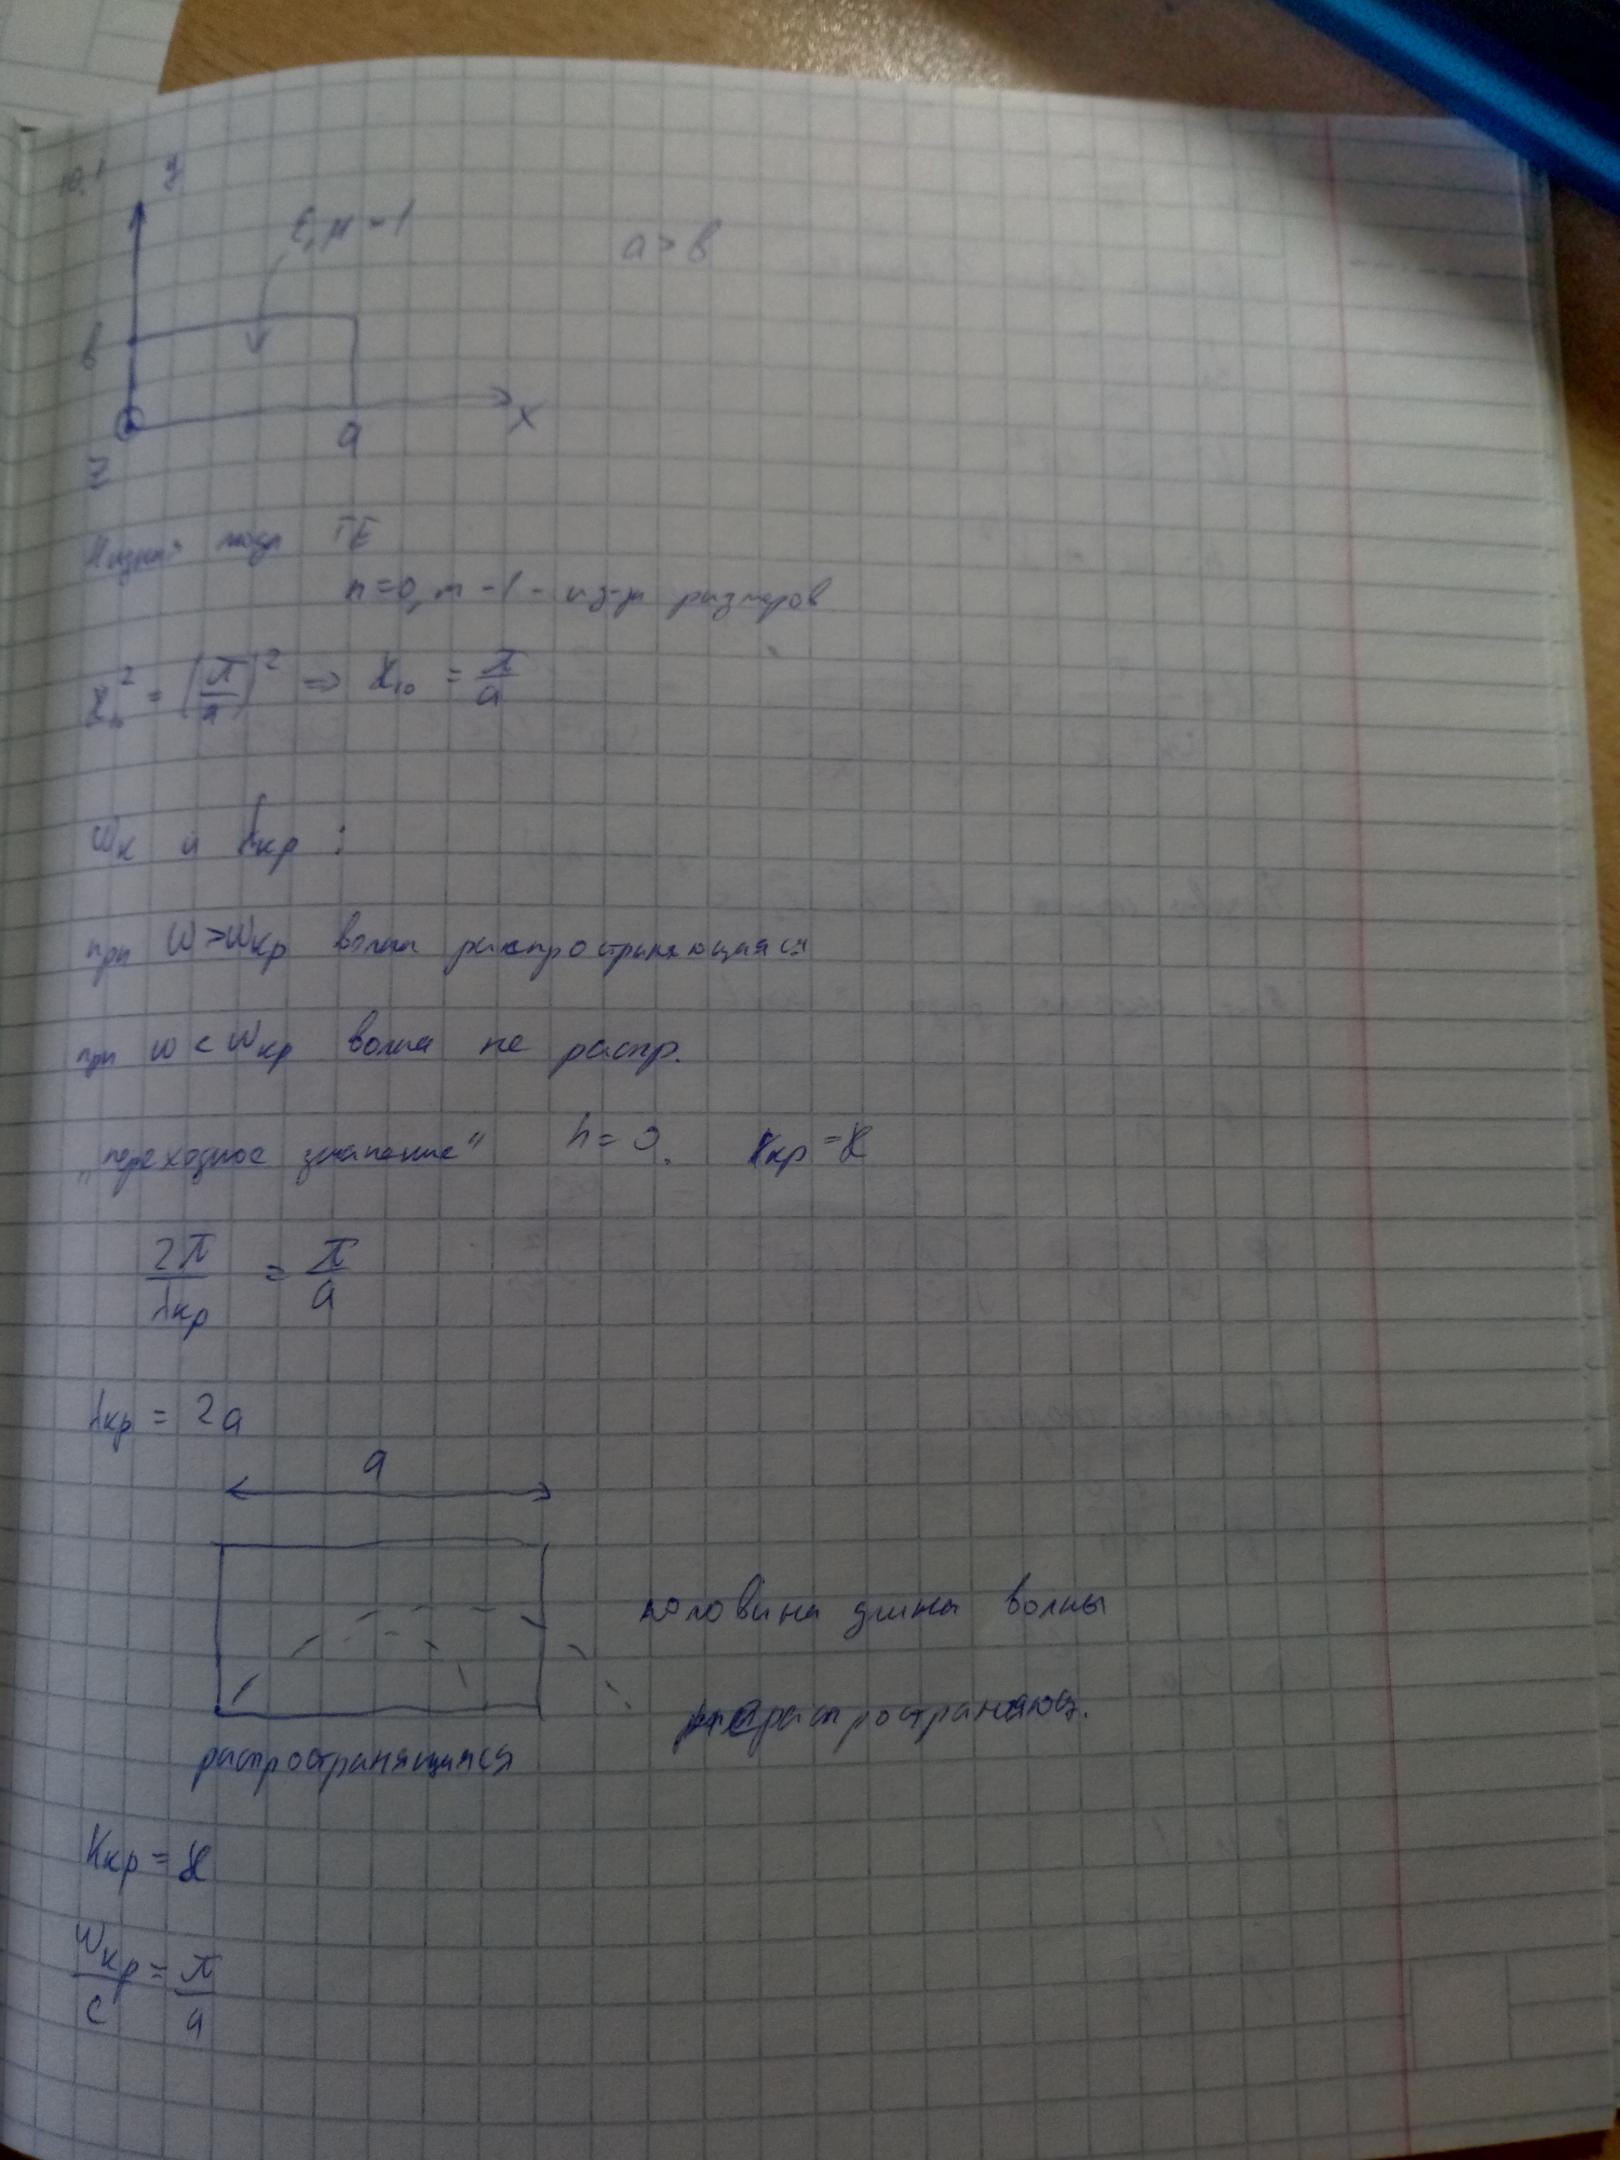 10.1
y
ε, μ = 1
a > b
b
a
x
z
моды TE
n=0, m-1 - из-за размеров
ϰ₁₀² = (π/a)² ⇒ ϰ₁₀ = π/a
ωк и λкр :
при ω>ωкр волна распространяющаяся
при ω < ωкр волна не распр.
„переходное значение" h = 0. kкр = ϰ
2π/λкр = π/a
λкр = 2a
a
половина длины волны
нераспространяющ.
распространящаяся
kкр = ϰ
ωкр/c = π/a